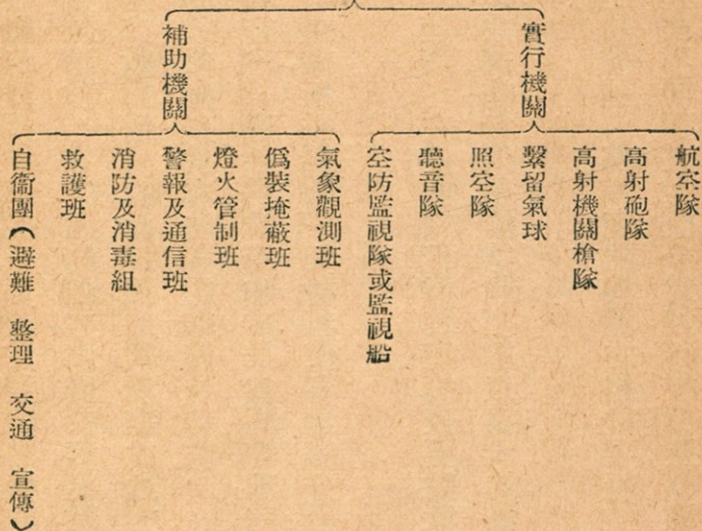 實行機關
航空隊
高射砲隊
高射機關槍隊
繫留氣球
照空隊
聽音隊
空防監視隊或監視船
補助機關
氣象觀測班
僞裝掩蔽班
燈火管制班
警報及通信班
消防及消毒組
救護班
自衞團(避難 整理 交通 宣傳)